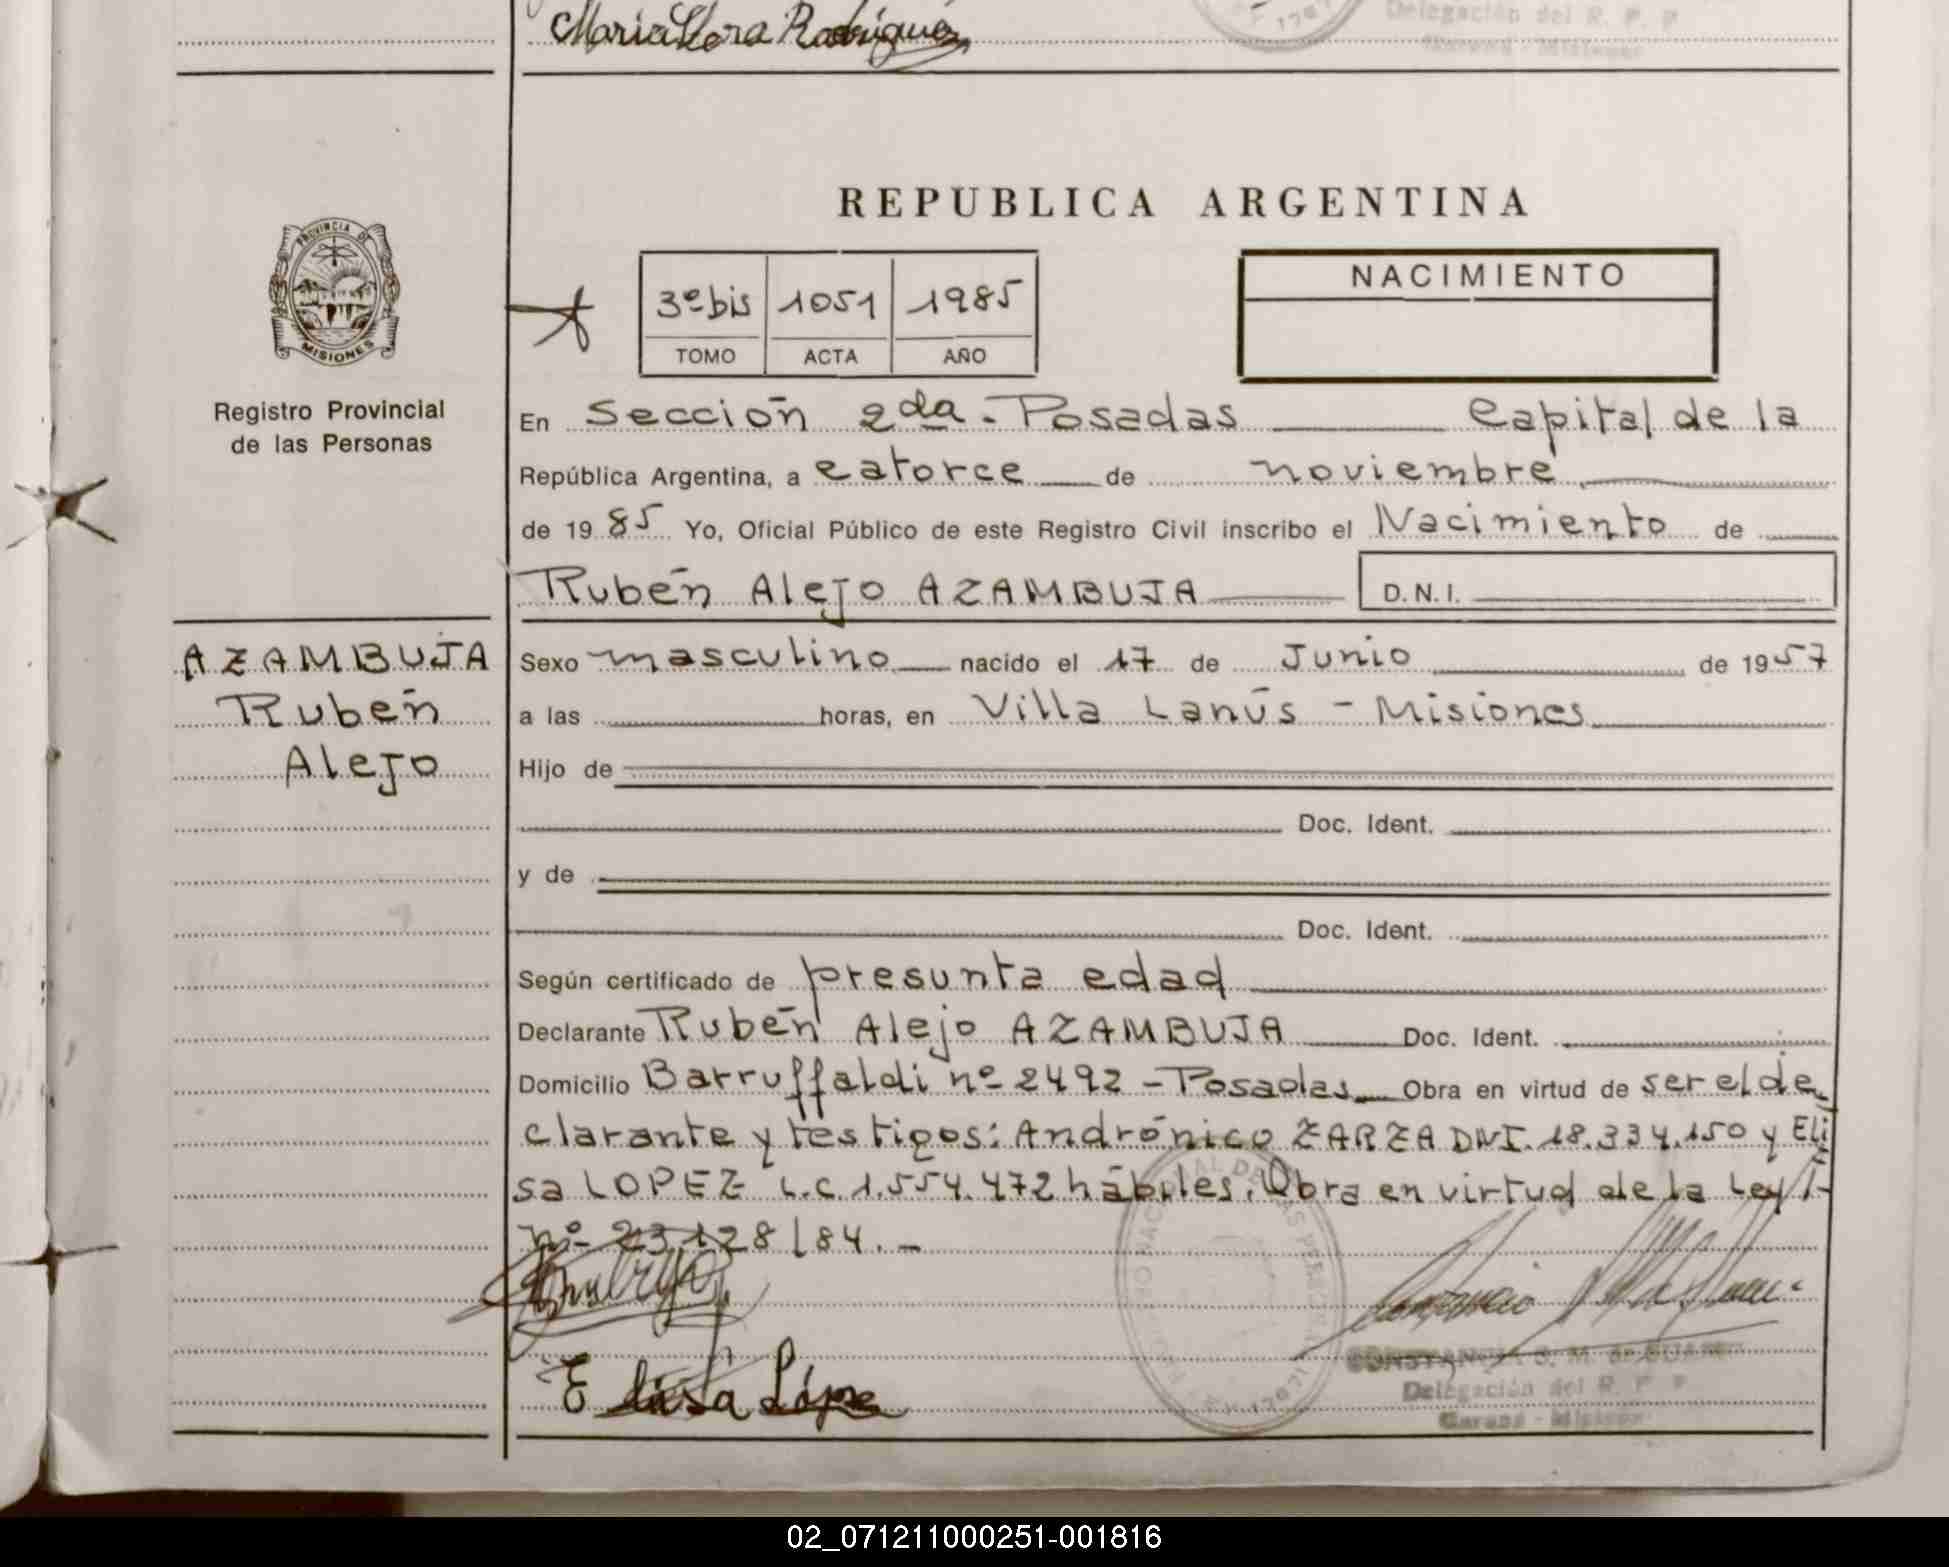 María Vera Rodríguez
Delegación del R. P. P
REPUBLICA ARGENTINA
PROVINCIA DE
MISIONES
Registro Provincial
de las Personas
3º bis 1051 1985
TOMO ACTA AÑO
NACIMIENTO
En Sección 2da - Posadas Capital de la
República Argentina, a catorce de noviembre
de 1985 Yo, Oficial Público de este Registro Civil inscribo el Nacimiento de
Rubén Alejo AZAMBUJA D.N.I.
AZAMBUJA
Rubén
Alejo
Sexo masculino nacido el 17 de Junio de 1957
a las horas, en Villa Lanús - Misiones
Hijo de
Doc. Ident.
y de
Doc. Ident.
Según certificado de presunta edad
Declarante Rubén Alejo AZAMBUJA Doc. Ident.
Domicilio Barruffaldi nº 2492 - Posadas Obra en virtud de ser el de
clarante y testigos: Andrónico ZARZA DNI. 18.334.150 y Eli
sa LOPEZ L.C 1.554.472 hábiles. Obra en virtud de la Ley
nº 23128/84.-
Elisa López
CONSTANCIA S. M. de
Delegación del R. P. P
02_071211000251-001816